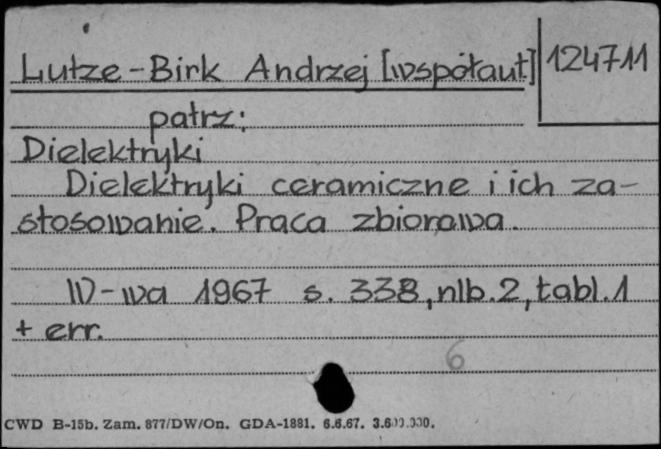 Lutze-Birk Andrzej [współaut]
124711
patrz:
Dielektryki
Dielektryki ceramiczne i ich za-
stosowanie. Praca zbiorowa.
W-wa 1967 s. 338, nlb. 2, tabl. 1
+ err.
6
CWD B-15b. Zam. 877/DW/On. GDA-1881. 6.6.67.